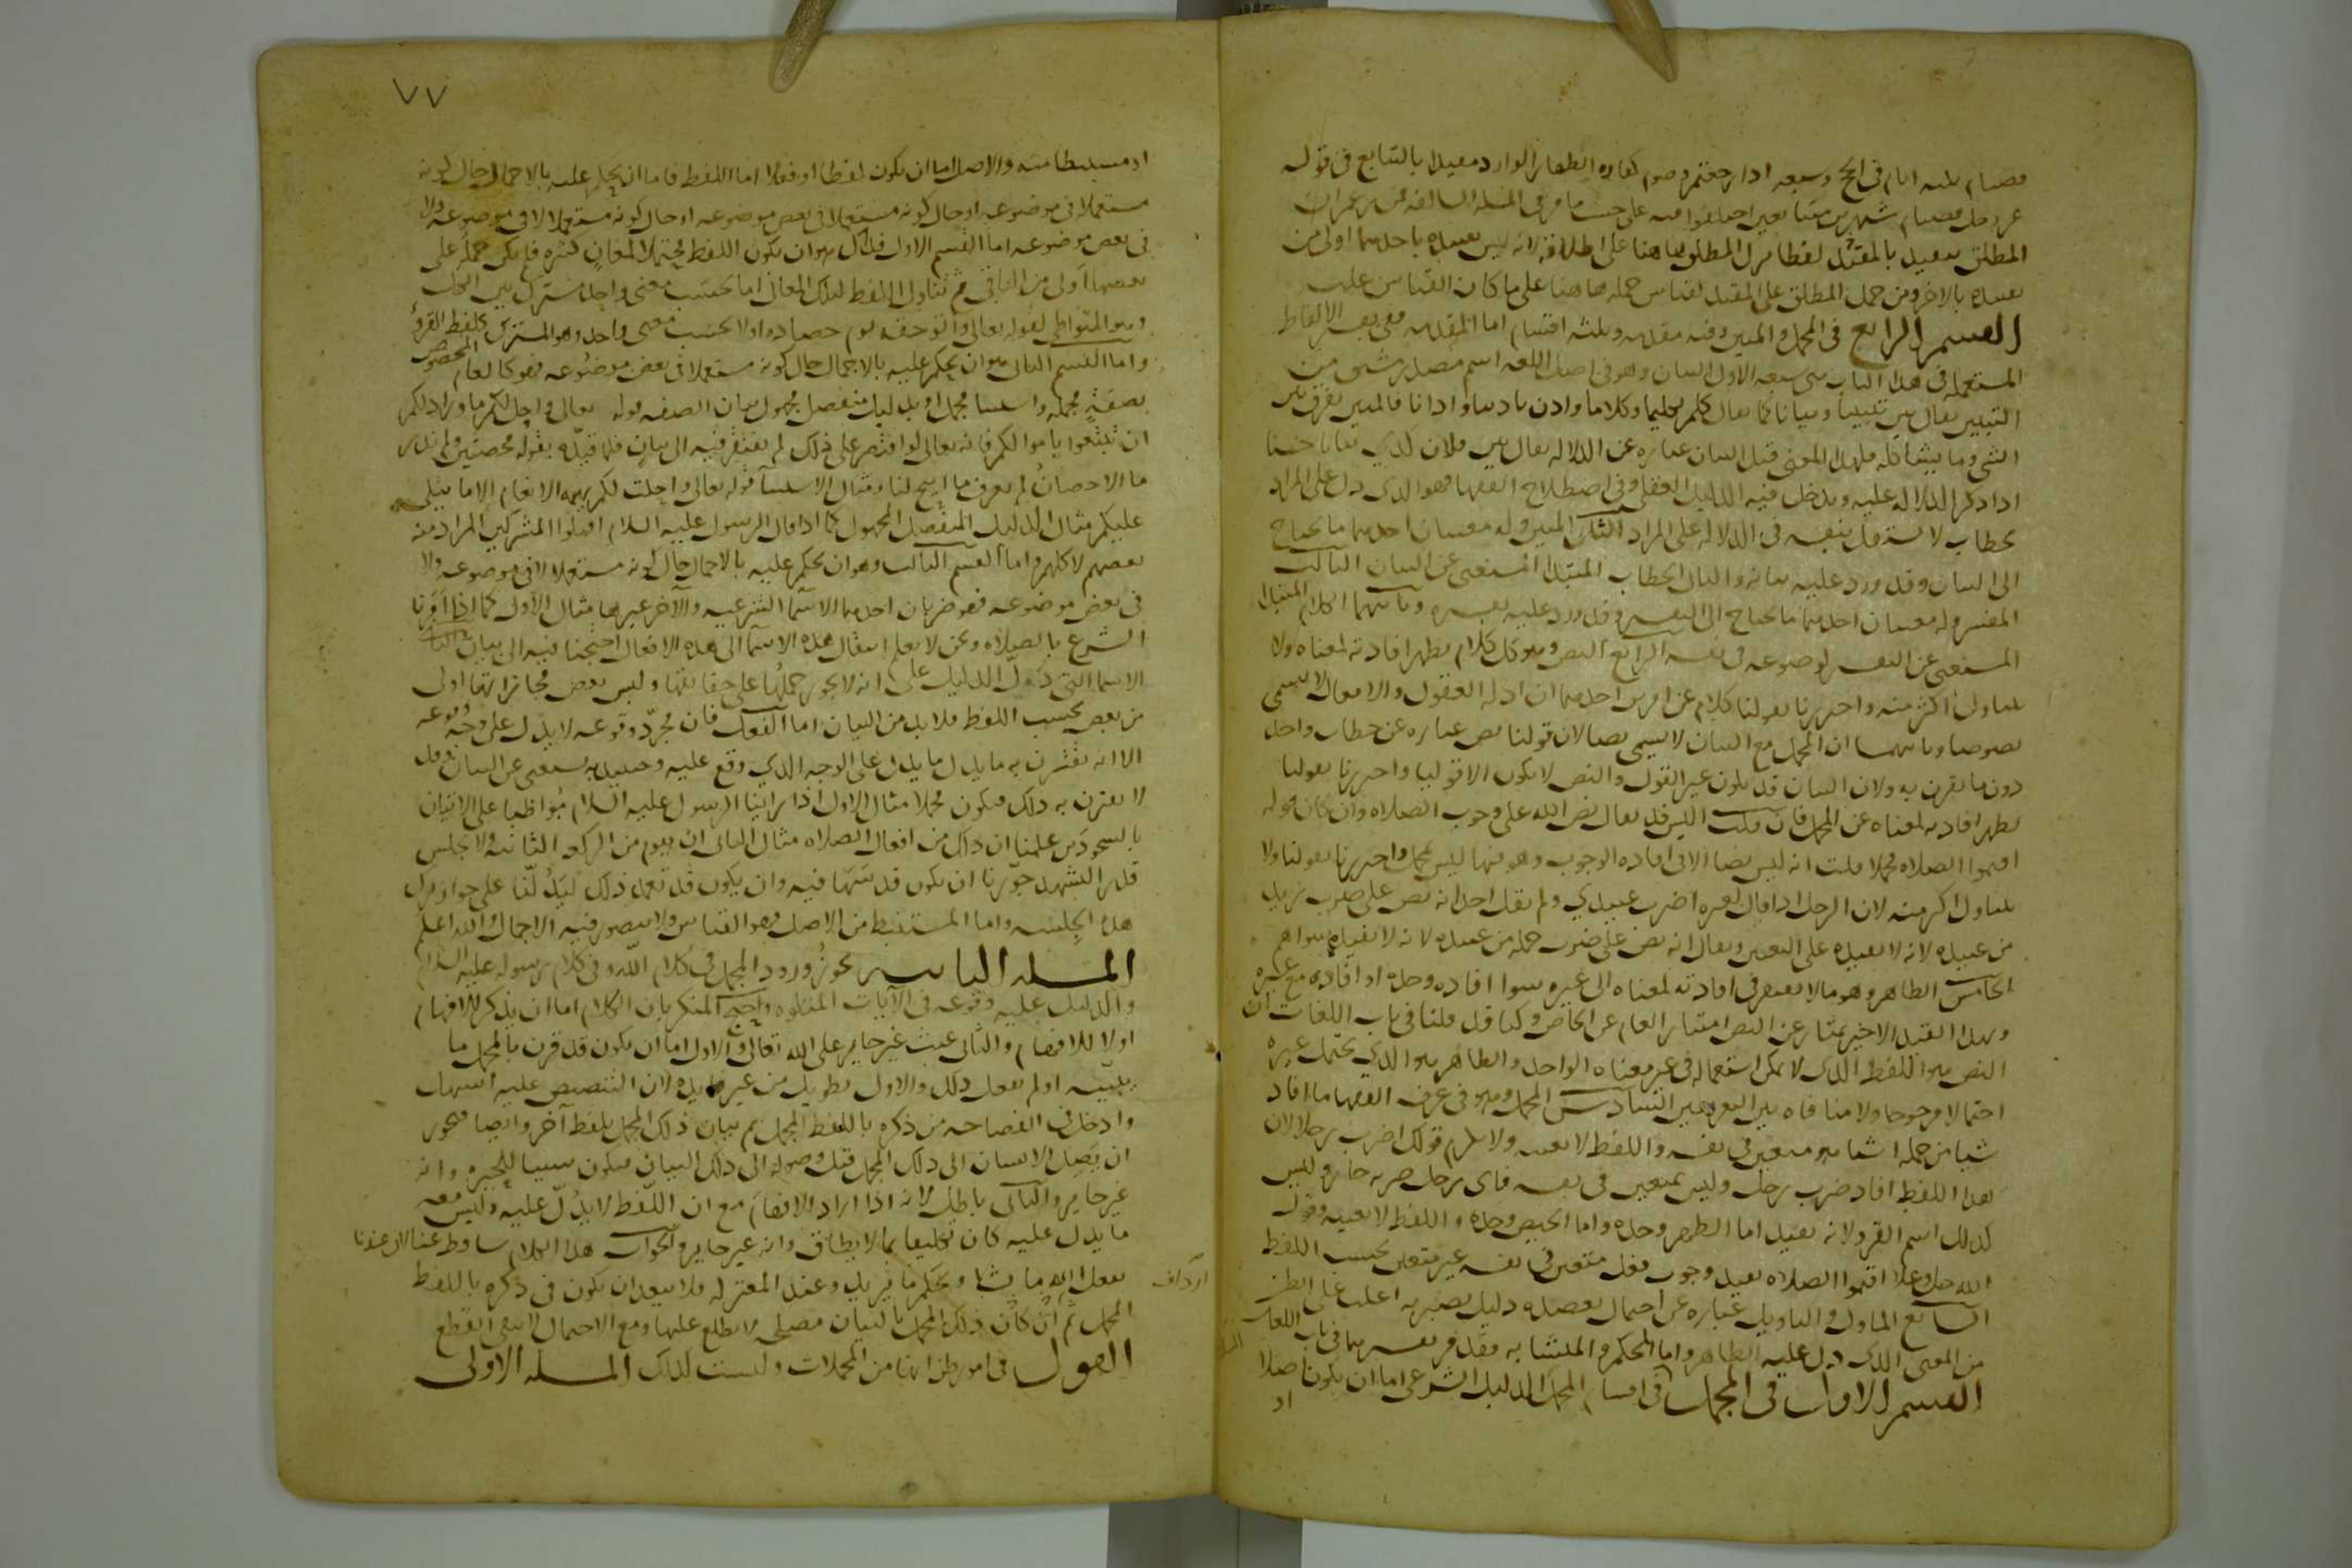 فصيام ثلثه ايام في الحج وسبعه اذا رجعتم وصوم كفاره الظهار الوارد مقيدا بالتتابع في قوله
عز وجل فصيام شهرين متتابعين اختلفوا فيه على حسب ما مر في المسله السالفه فمن زعم ان
المطلق يتقيد بالمقيد لفظا ترك المطلق هاهنا على اطلاقه لانه ليس تقييده باحدهما اولى من
تقييده بالاخر ومن حمل المطلق على المقيد لقياس حمله هاهنا على ما كان القياس عليه
القسم الرابع في المجمل والمبين وفيه مقدمه وثلثه اقسام اما المقدمه ففي تفسير الالفاظ
المستعمله في هذا الباب هي سبعه الاول البيان وهو في اصل اللغه اسم مصدر مشتق من
التبيين يقال بين تبيينا وبيانا كما يقال كلم تكليما وكلاما واذن تاذينا واذانا فالمبين يفرق بين
الشي وما يشاكله فلهذا المعنى قيل البيان عباره عن الدلاله يقال بين فلان كذي بيانا حسنا
اذا ذكر الدلاله عليه ويدخل فيه الدليل العقلي وفي اصطلاح الفقها هو الذي دل على المراد
بخطاب لا يستقل بنفسه في الدلاله على المراد الثاني المبين وله معنيان احدهما ما يحتاج
الى البيان وقد ورد عليه بيانه والثاني الخطاب المبتدا المستغني عن البيان الثالث
المفسر وله معنيان احدهما ما يحتاج الى التفسير وقد ورد عليه تفسيره وثانيهما الكلام المبتدا
المستغني عن التفسير لوضوحه في نفسه الرابع النص وهو كل كلام يظهر افادته لمعناه ولا
يتناول اكثر منه واحترزنا بقولنا كلام عن امرين احدهما ان ادله العقول والافعال لا تسمى
نصوصا وثانيهما ان المجمل مع البيان لا يسمى نصا لان قولنا نص عباره عن خطاب واحد
دون ما يقرن به ولان البيان قد يكون غير القول والنص لا يكون الا قولا واحترزنا بقولنا
يظهر افادته لمعناه عن المجمل فان قلت اليس قد يقال نص الله على وجوب الصلاه وان كان قوله
اقيموا الصلاه مجملا قلت انه ليس نصا الا في افاده الوجوب وهو فيها ليس بمجمل واحترزنا بقولنا ولا
يتناول اكثر منه لان الرجل اذا قال لغيره اضرب عبيدي ولم يقل احد انه نص على ضرب زيد
من عبيده لانه لا يفيده على التعيين ويقال انه نص على ضرب جمله من عبيده لانه لا يفيد سواهم
الخامس الظاهر وهو ما لا يفتقر في افادته لمعناه الى غيره سوا افاده وحده او افاده مع غيره
وبهذا القيد الاخير يمتاز عن النص امتياز العام عن الخاص وكنا قد قلنا في باب اللغات ان
النص هو اللفظ الذي لا يمكن استعماله في غير معناه الواحد والظاهر هو الذي يحتمل غيره
احتمالا مرجوحا ولا منافاه بين التعريفين السادس المجمل وهو في عرف الفقها ما افاد
شيا من جمله اشيا هو متعين في نفسه واللفظ لا يعينه ولا يلزم قولك اضرب رجلا لان
هذا اللفظ افاد ضرب رجل وليس بمتعين في نفسه فاي رجل ضربه جاز وليس
كذلك اسم القرو لانه يفيد اما الطهر وحده واما الحيض وحده واللفظ لا يعينه وقول
الله جل وعلا اقيموا الصلاه يفيد وجوب فعل متعين في نفسه غير متعين بحسب اللفظ
السابع الماول والتاويل عباره عن احتمال يعضده دليل يصير به اغلب على الظن
من المعنى الذي دل عليه الظاهر واما المحكم والمتشابه فقد مر تفسيرهما في باب اللغات
القسم الاول في المجمل في اقسام المجمل الدليل الشرعي اما ان يكون اصلا
او
٧٧
او مستنبطا منه والاصل اما ان يكون لفظا او فعلا اما اللفظ فاما ان يحكم عليه بالاجمال حال كونه
مستعملا في موضوعه او حال كونه مستعملا في بعض موضوعه او حال كونه مستعملا لا في موضوعه ولا
في بعض موضوعه اما القسم الاول فذلك هو ان يكون اللفظ محتملا لمعان كثيره فلم يكن حمله على
بعضها اولى من الباقي ثم تناول اللفظ لتلك المعاني اما بحسب معنى واحد مشترك بين الكل
وهو المتواطي لقوله تعالى واتوا حقه يوم حصاده او لا بحسب معنى واحد وهو المشترك كلفظ القرؤ
واما القسم الثاني هو ان يحكم عليه بالاجمال حال كونه مستعملا في بعض موضوعه فهو كالعام المخصوص
بصفه مجمله واستثنا مجمل او بدليل منفصل مجهول مثال الصفه قوله تعالى واحل لكم ما وراذلكم
ان تبتغوا باموالكم فانه تعالى لو اقتصر على ذلك لم يفتقر فيه الى بيان فلما قيده بقوله محصنين ولم ندر
ما الاحصان لم نعرف ما ابيح لنا ومثال الاستثنا قوله تعالى واحلت لكم بهيمه الانعام الا ما يتلى
عليكم مثال الدليل المنفصل المجهول كما اذا قال الرسول عليه السلام اقتلوا المشركين المراد منه
بعضهم لا كلهم واما القسم الثالث وهو ان يحكم عليه بالاجمال حال كونه مستعملا لا في موضوعه ولا
في بعض موضوعه فهو ضربان احدهما الاسما الشرعيه والاخر غيرها مثال الاول كما اذا امرنا
الشرع بالصلاه ونحن لا نعلم انتقال هذه الاسما الى هذه الافعال احتجنا فيه الى بيان الثاني
الاسما التي دل الدليل على انه لا يجوز حملها على حقايقها وليس بعض مجازاتها اولى
من بعض بحسب اللفظ فلا بد من البيان اما الفعل فان مجرد وقوعه لا يدل على وجه وقوعه
الا انه يقترن به ما يدل على الوجه الذي وقع عليه وحينيذ يستغني عن البيان وقد
لا يقترن به ذلك فيكون مجملا مثال الاول اذا راينا الرسول عليه السلام مواظبا على الاتيان
بالسجودين علمنا ان ذاك من افعال الصلاه مثال الثاني ان يقوم من الركعه الثانيه ولا يجلس
قدر التشهد جوزنا ان يكون قد سها فيه وان يكون قد تعمد ذلك ليدلنا على جواز ترك
هذه الجلسه واما المستنبط من الاصل فهو القياس ولا يتصور فيه الاجمال والله اعلم
المسله الثانيه يجوز ورود المجمل في كلام الله وفي كلام رسوله عليه السلام
والدليل عليه وقوعه في الايات المتلوه واحتج المنكر بان الكلام اما ان يذكر للافهام
اولا للافهام والثاني عبث غير جايز على الله تعالى والاول اما ان يكون قد قرن بالمجمل ما
يبينه او لم يفعل ذلك والاول تطويل من غير فايده لان التنصيص عليه اسهل
وادخل في الفصاحه من ذكره باللفظ المجمل ثم بيان ذلك المجمل بلفظ آخر وايضا فيجوز
ان يصل الانسان الى ذلك المجمل قبل وصوله الى ذلك البيان فيكون سببا للحيره وانه
غير جايز والثاني باطل لانه اذا اراد الافهام مع ان اللفظ لا يدل عليه وليس معه
ما يدل عليه كان تكليفا بما لا يطاق وانه غير جايز والجواب هذا الكلام ساقط عنا لان عندنا
يفعل الله ما يشا ويحكم ما يريد وعند المعتزله فلا يبعد ان يكون في ذكره باللفظ
المجمل ثم ان كان ذلك المجمل بالبيان مصلحه لا يطلع عليها ومع الاحتمال لا يبقى القطع
القول في امور ظن انها من المجملات وليست كذلك المسله الاولى